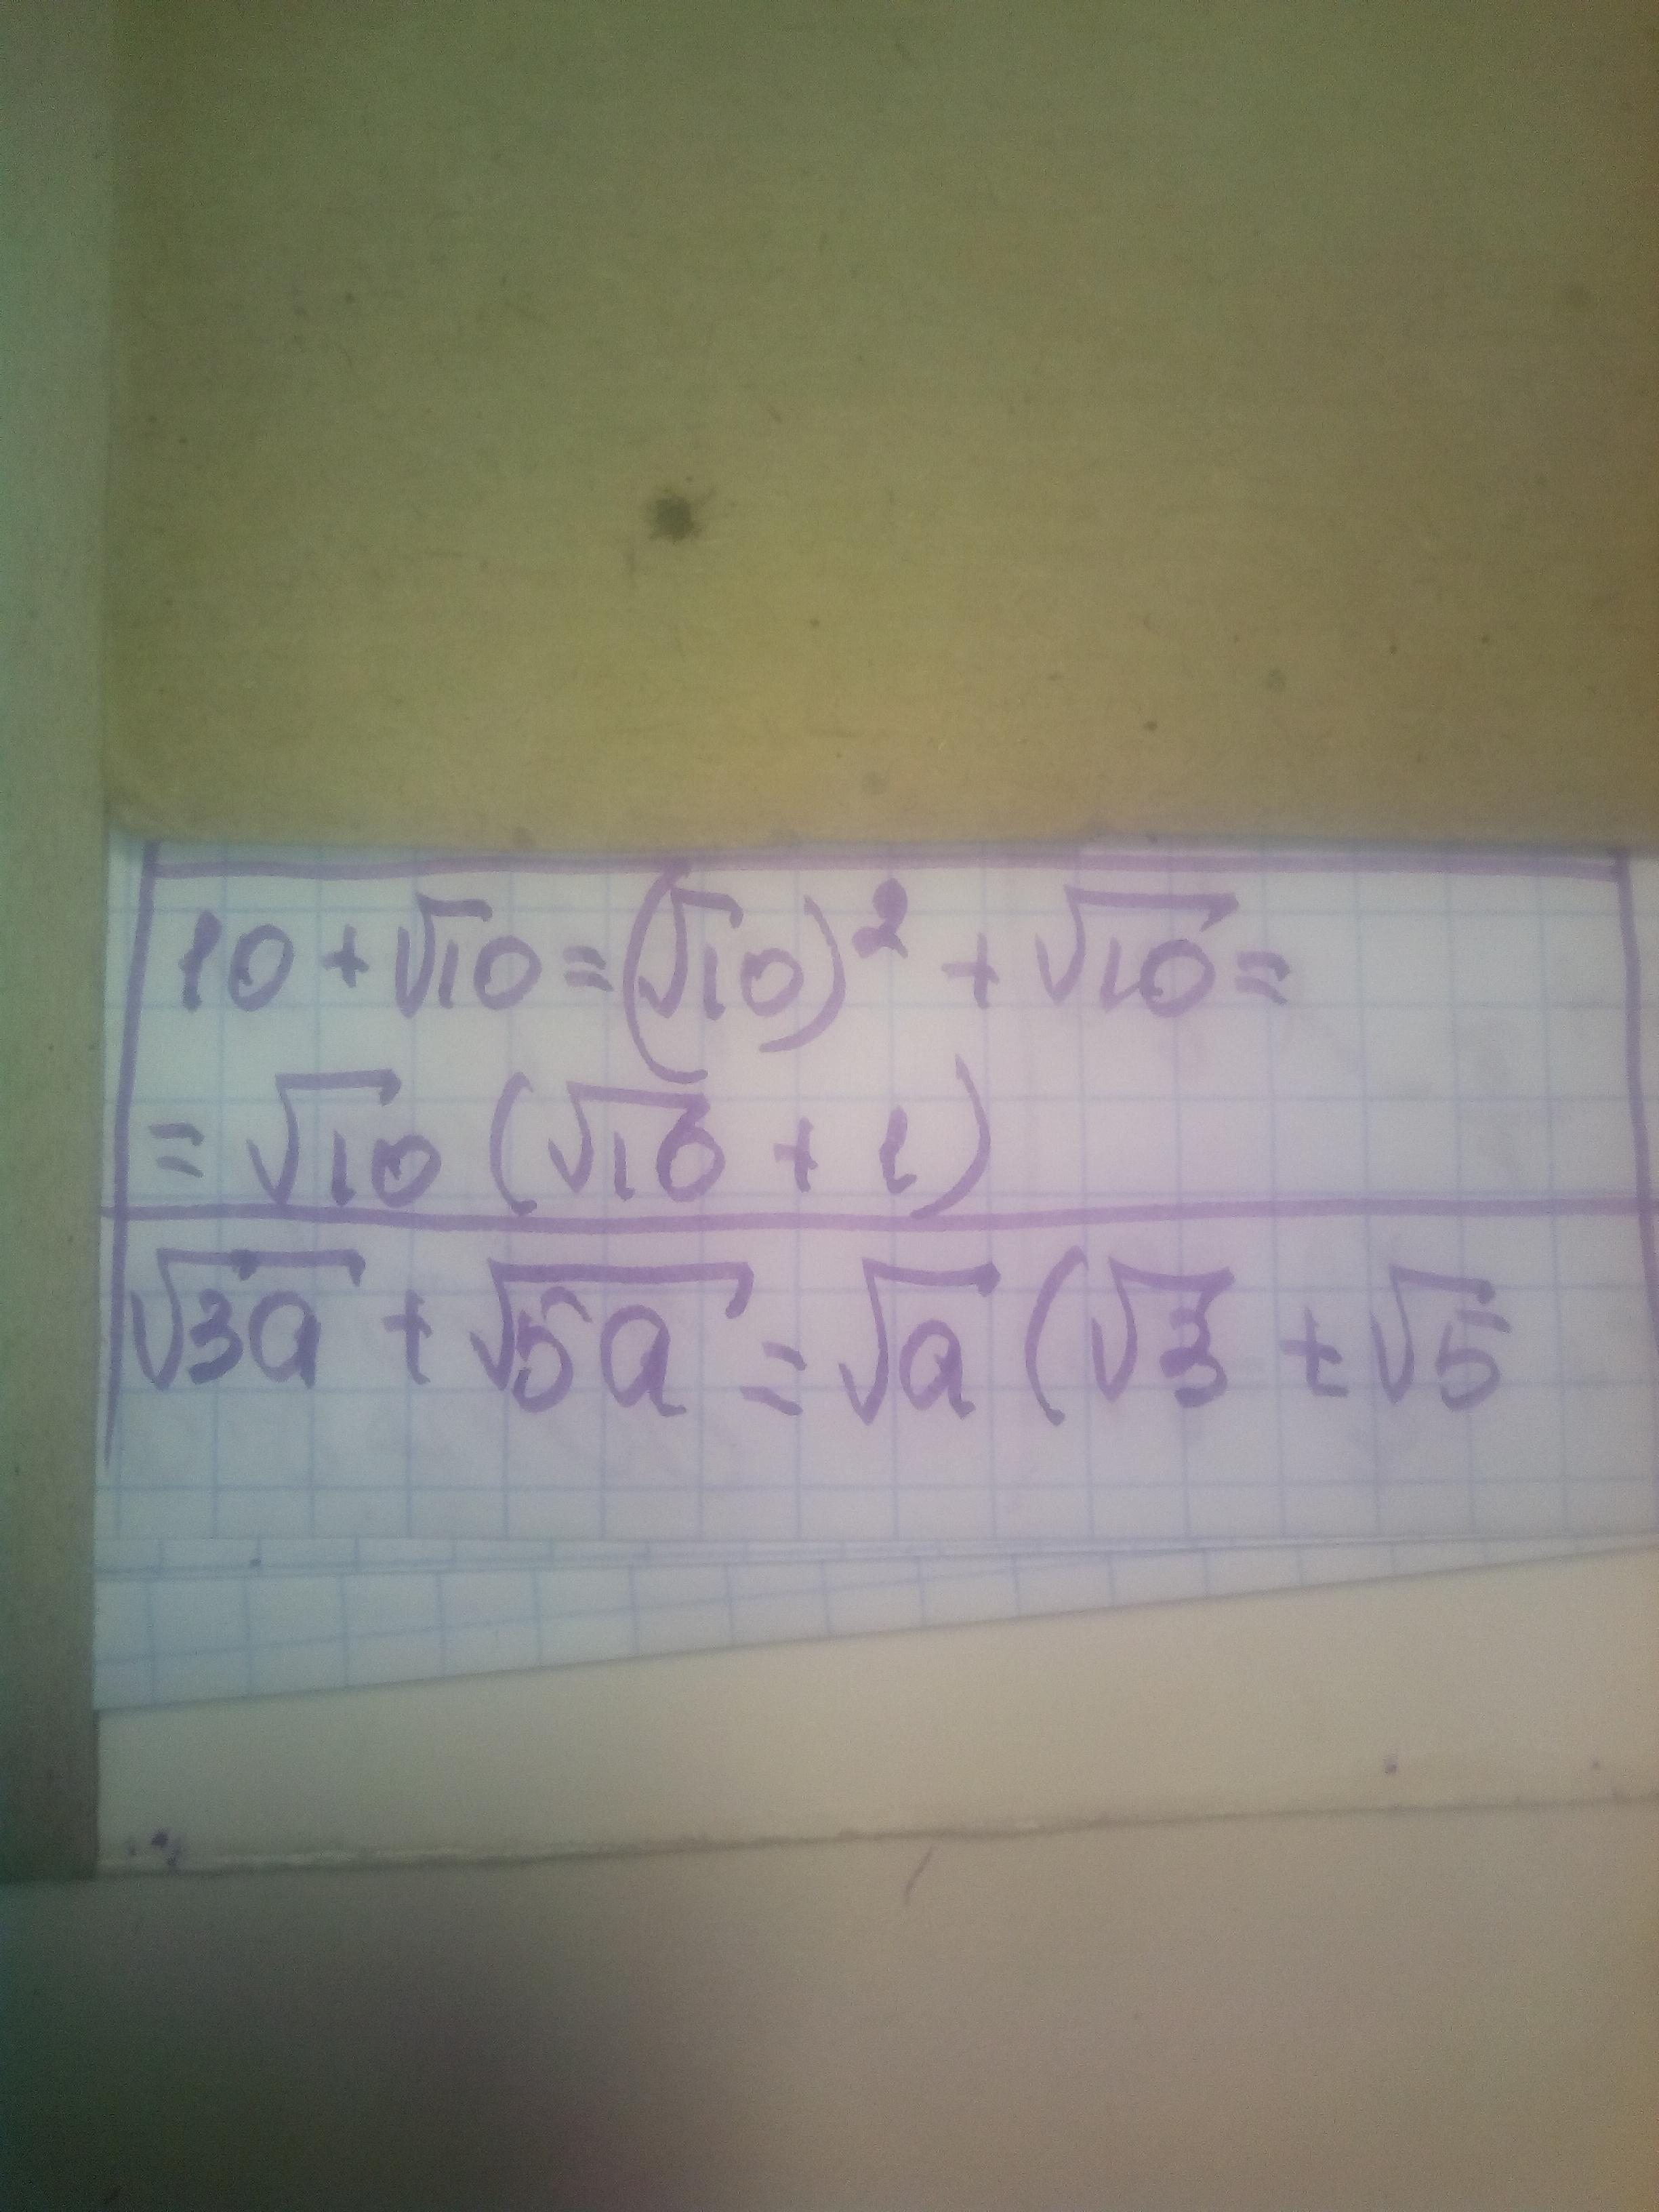 10 + √10 = (√10)² + √10 =
= √10 (√10 + 1)
√3a + √5a = √a (√3 + √5